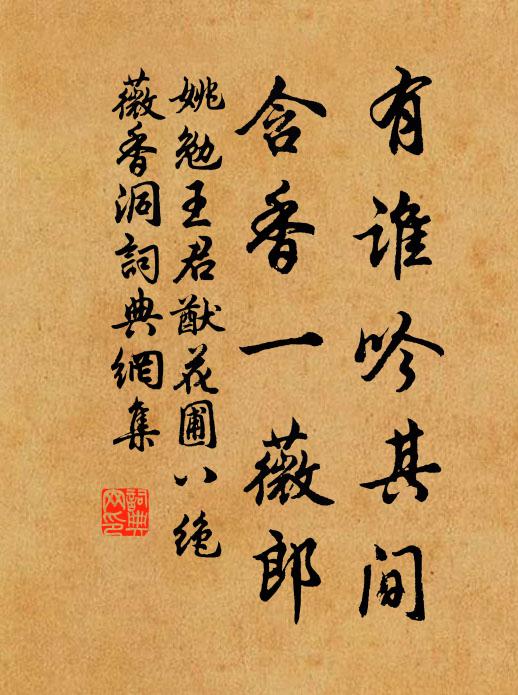 有誰吟其间
含香一薇郎
姚勉王君猷花圃八绝
薇香洞詞典網集
詞典
网印